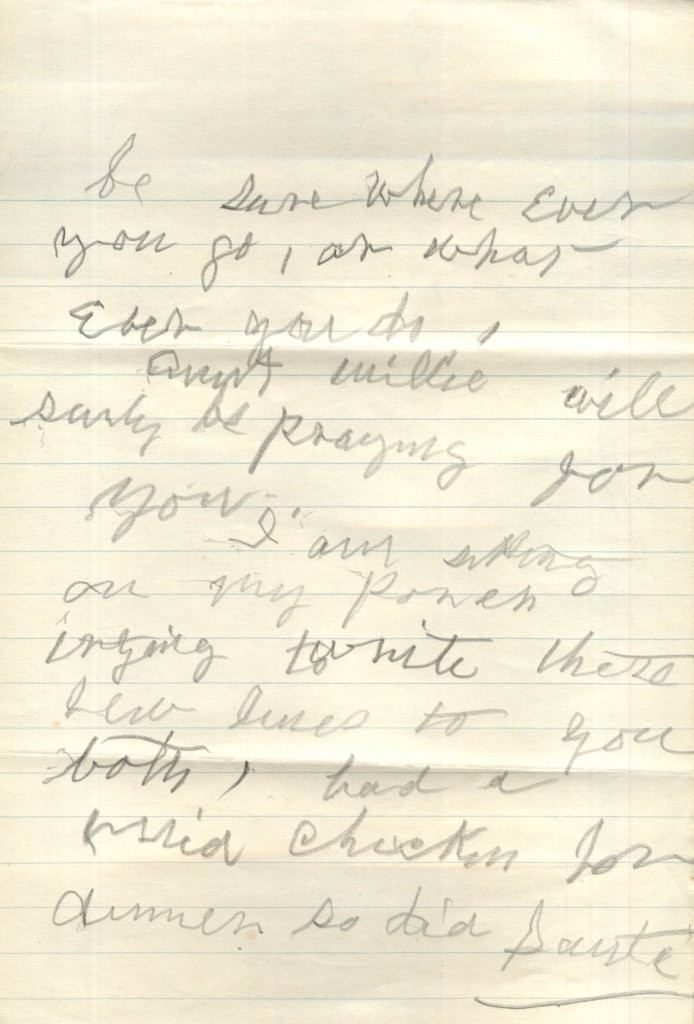 be sure where Ever
you go, or what
Ever you do,
Aunt Millie will
surly be praying for
you.
I am sitting
on my Porch
trying to write these
few lines to you
both, had a
fried chicken for
dinner so did